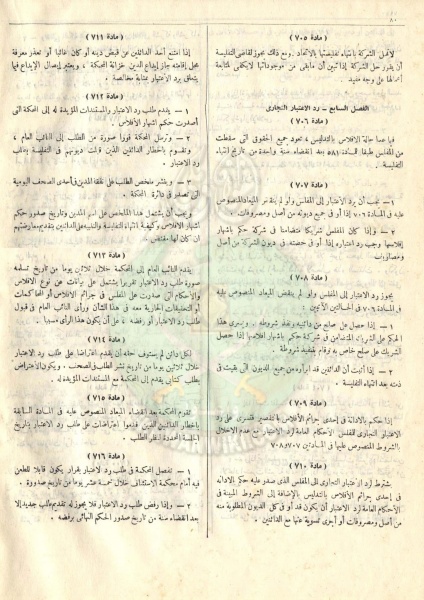 ٨٠
( مادة ٧٠٥ )
لا تحل الشركة بانتهاء تفليستها بالاتحاد . ومع ذلك يجوز لقاضى التفليسة
أن يقرر حل الشركة إذا تبين أن ما بقى من موجوداتها لا يكفى لمتابعة
أعمالها على وجه مفيد .
الفصل السابع – رد الاعتبار التجارى
( مادة ٧٠٦ )
فيما عدا حالة الإفلاس بالتدليس ، تعود جميع الحقوق التى سقطت
عن المفلس طبقا للمادة ٥٨١ بعد انقضاء سنة واحدة من تاريخ انتهاء
التفليسة .
( مادة ٧٠٧ )
١ – يجب أن يرد الاعتبار إلى المفلس ولو لم ينقض الميعاد المنصوص
عليه فى المادة ٧٠٦ إذا أوفى جميع ديونه من أصل ومصروفات .
٢ – وإذا كان المفلس شريكا متضامنا فى شركة حكم بإشهار
إفلاسها وجب رد اعتباره إذا أوفى حصته فى ديون الشركة من أصل
ومصاريف
( مادة ٧٠٨ )
يجوز رد الاعتبار إلى المفلس ولو لم ينقض الميعاد المنصوص عليه
فى المادة ٧٠٦ فى الحالتين الآتيتين :
١ – إذا حصل على صلح من دائنيه ونفذ شروطه . ويسرى هذا
الحكم على الشريك المتضامن فى شركة حكم بإشهار إفلاسها إذا حصل
الشريك على صلح خاص به وقام بتنفيذ شروطه .
٢ – إذا أثبت أن الدائنين قد أبرأوه من جميع الديون التى بقيت فى
ذمته بعد انتهاء التفليسة .
( مادة ٧٠٩ )
إذا حكم بالإدانة فى إحدى جرائم الإفلاس بالتقصير فتسرى على رد
الاعتبار التجارى للمفلس الأحكام العامة لرد الاعتبار مع عدم الاخلال
بالشروط المنصوص عليها فى المادتين ٧٠٧ و٧٠٨
( مادة ٧١٠ )
يشترط لرد اعتبار التجارى إلى المفلس الذى صدر عليه حكم بالإدانة
فى إحدى جرائم الإفلاس بالتدليس بالإضافة إلى الشروط المبينة فى
الأحكام العامة لرد الاعتبار أن يكون قد أوفى كل الديون المطلوبة منه
من أصل ومصروفات أو أجرى تسوية عنها مع الدائنين .
( مادة ٧١١ )
إذا امتنع أحد الدائنين عن قبض دينه أو كان غائبا أو تعذر معرفة
محل إقامته جاز إيداع الدين خزانة المحكمة ، ويعتبر إيصال الإيداع فيما
يتعلق برد الاعتبار بمثابة مخالصة .
( مادة ٧١٢ )
١ – يقدم طلب رد الاعتبار والمستندات المؤيدة له إلى المحكمة التى
أصدرت حكم اشهار الأفلاس .
٢ – وترسل المحكمة فورا صورة من الطلب إلى النائب العام ،
وتقوم باخطار الدائنين الذين قبلت ديونهم فى التفليسة بطلب
رد الاعتبار .
٣ – وينشر ملخص الطلب على نفقة المدين فى أحدى الصحف اليومية
التى تصدر فى دائرة المحكمة .
ويجب أن يشتمل هذا الملخص على اسم المدين وتاريخ صدور حكم
اشهار الإفلاس وكيفية انتهاء التفليسة والتنبيه على الدائنين بتقديم معارضتهم
ان كان لها مقتض .
( مادة ٧١٣ )
يقدم النائب العام إلى المحكمة خلال ثلاثين يوما من تاريخ تسلمه
صورة طلب رد الاعتبار تقريرا يشتمل على بيانات عن نوع الافلاس
والأحكام التى صدرت على المفلس فى جرائم الإفلاس أو المحاكمات
أو التحقيقات الجارية معه فى هذا الشأن ورأى النائب العام فى قبول
طلب رد الاعتبار أو رفضه ، على أن يكون هذا الرأى مسببا .
( مادة ٧١٤ )
لكل دائن لم يستوف حقه أن يقدم اعتراضا على طلب رد الاعتبار
خلال ثلاثين يوما من تاريخ نشر الطلب فى الصحف . ويكون الاعتراض
بطلب كتابى يقدم إلى المحكمة مع المستندات المؤيدة له .
( مادة ٧١٥ )
تقوم المحكمة بعد انقضاء الميعاد المنصوص عليه فى المادة السابقة
باخطار الدائنين الذين قدموا اعتراضات على طلب رد الاعتبار بتاريخ
الجلسة المحددة لنظر الطلب .
( مادة ٧١٦ )
١ – تفصل المحكمة فى طلب رد الاعتبار بقرار يكون قابلا للطعن
فيه أمام محكمة الاستئناف خلال خمسة عشر يوما من تاريخ صدوره .
٢ – وإذا رفض طلب رد الاعتبار فلا يجوز له تقديم طلب جديد إلا
بعد انقضاء سنة من تاريخ صدور الحكم النهائى برفضه .